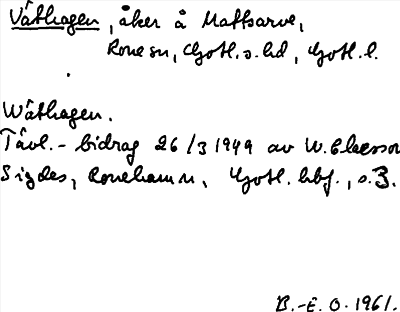 Våthagen, åker å Mattsarve,
Rone sn, Gotl. s. hd, Gotl. l.
Wåthagen.
Tävl.-bidrag 26/3 1949 av W. Claesson
Sigdes, Ronehamn, Gotl. hbf., s. 3.
B.-E. O. 1961.